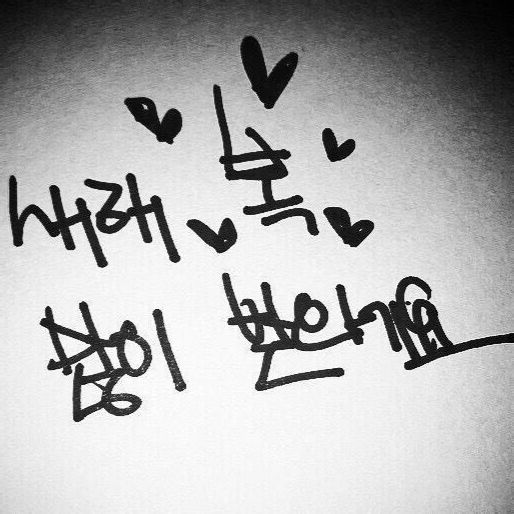 새해 복
많이 받으세요